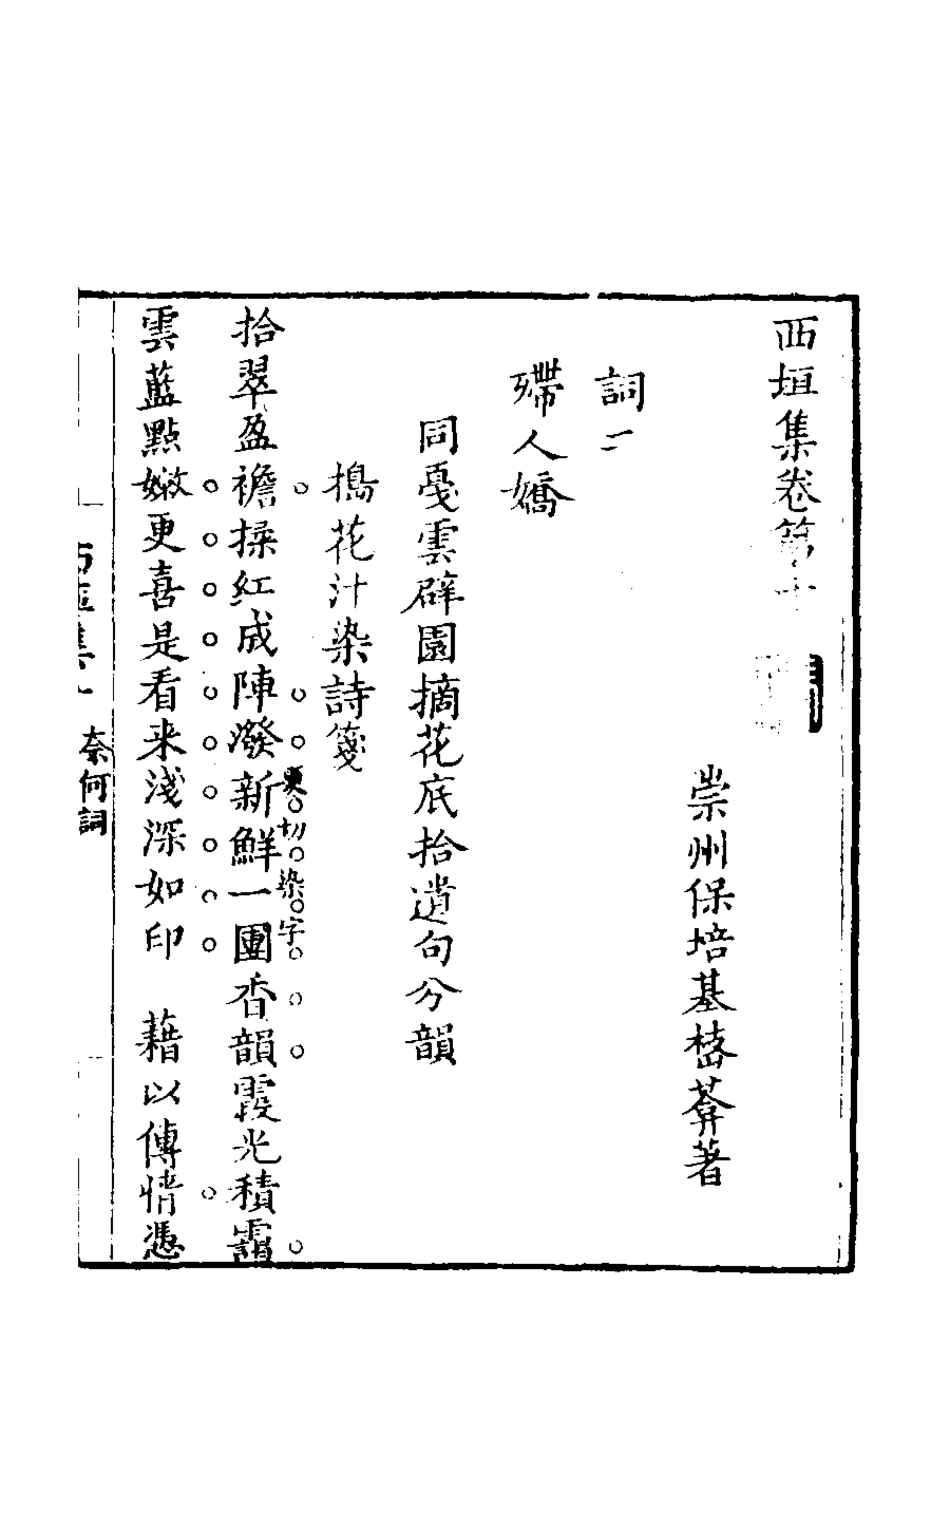 西垣集卷第十
崇州保培基𡺽葊著
詞二
殢人嬌
同戛雲辟園摘花底拾遺句分韻
搗花汁染詩箋
拾翠盈襜揉紅成陣潑新鮮一團香韻霞光積靄
更切染字
雲藍點嫩更喜是看来淺深如印　藉以傳情憑
西垣集
奈何詞